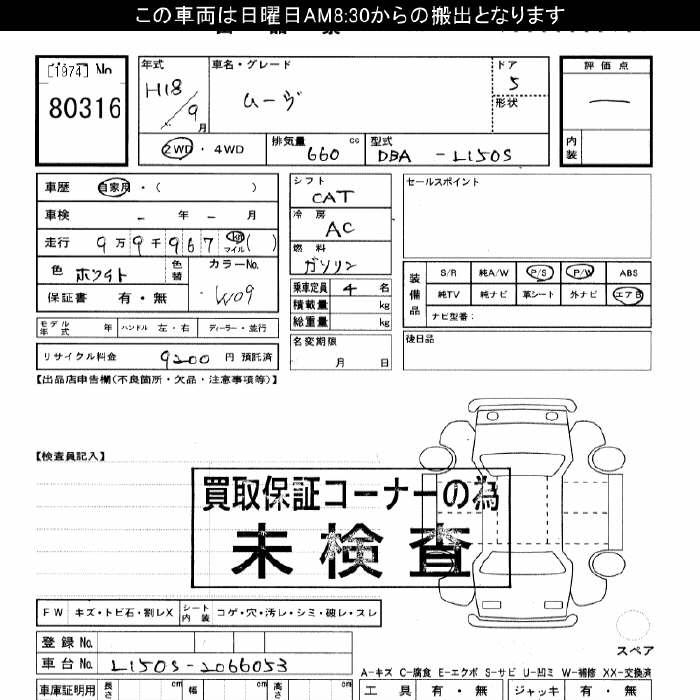 この車両は日曜日AM8:30からの搬出となります
[1974] No 年式 車名・グレード ドア 評価点
80316 H18/9月 ムーヴ 5 形状 —
内装
2WD・4WD 排気量 660 cc 型式 DBA-L150S
車歴 自家用・( ) シフト CAT セールスポイント
車検 - 年 - 月 冷房 AC
走行 9万9千967 km マイル ( ) 燃料 ガソリン
色 ホワイト 色替 カラーNo. W09 乗車定員 4名 装備品 S/R 純A/W P/S P/W ABS
保証書 有・無 積載量 kg 純TV 純ナビ 革シート 外ナビ エアB
総重量 kg ナビ型番:
モデル年式 年 ハンドル 左・右 ディーラー・並行 名変期限 月 日 後日品
リサイクル料金 9200 円 預託済
【出品店申告欄(不良箇所・欠品・注意事項等)】
【検査員記入】
買取保証コーナーの為
未検査
FW キズ・トビ石・割レX シート内装 コゲ・穴・汚レ・シミ・破レ・スレ
スペア
登録No.
車台No. L150S-2066053
A-キズ C-腐食 E-エクボ S-サビ U-凹ミ W-補修 XX-交換済
車庫証明用 長さ cm 幅 cm 高さ cm 工具 有・無 ジャッキ 有・無